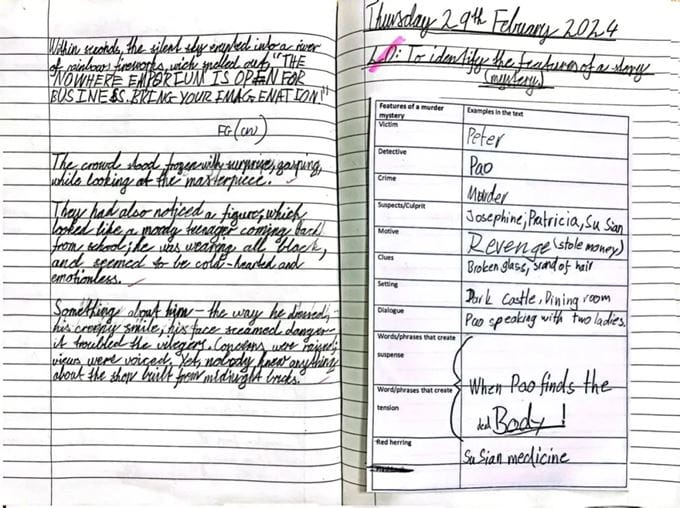 Within seconds, the silent sky erupted into a river
of rainbow fireworks, wich spelled out, "THE
NOWHERE EMPORIUM IS OPEN FOR
BUSINESS. BRING YOUR IMAGENATION!"
FG (cw)
The crowd stood frozen with surprise, gasping,
while looking at the masterpiece.
They had also noticed a figure; which
looked like a moody teenager coming back
from school; he was wearing all black,
and seemed to be cold-hearted and
emotionless.
Something about him – the way he dressed,
his creepy smile, his face screamed danger –
it troubled the vilegers. Concerns were raised;
views were voiced. Yet, nobody knew anything
about the shop built from midnight bricks.
Thursday 29th February 2024
LO: To identify the features of a story
(mystery)
Features of a murder mystery
Examples in the text
Victim
Peter
Detective
Pao
Crime
Murder
Suspects/Culprit
Josephine, Patricia, Su Sian
Motive
Revenge (stole money)
Clues
Broken glass, strand of hair
Setting
Dark Castle, Dining room
Dialogue
Pao speaking with two ladies.
Words/phrases that create
suspense
Word/phrases that create
tension
When Pao finds the
ded Body!
Red herring
Su Sian medicine